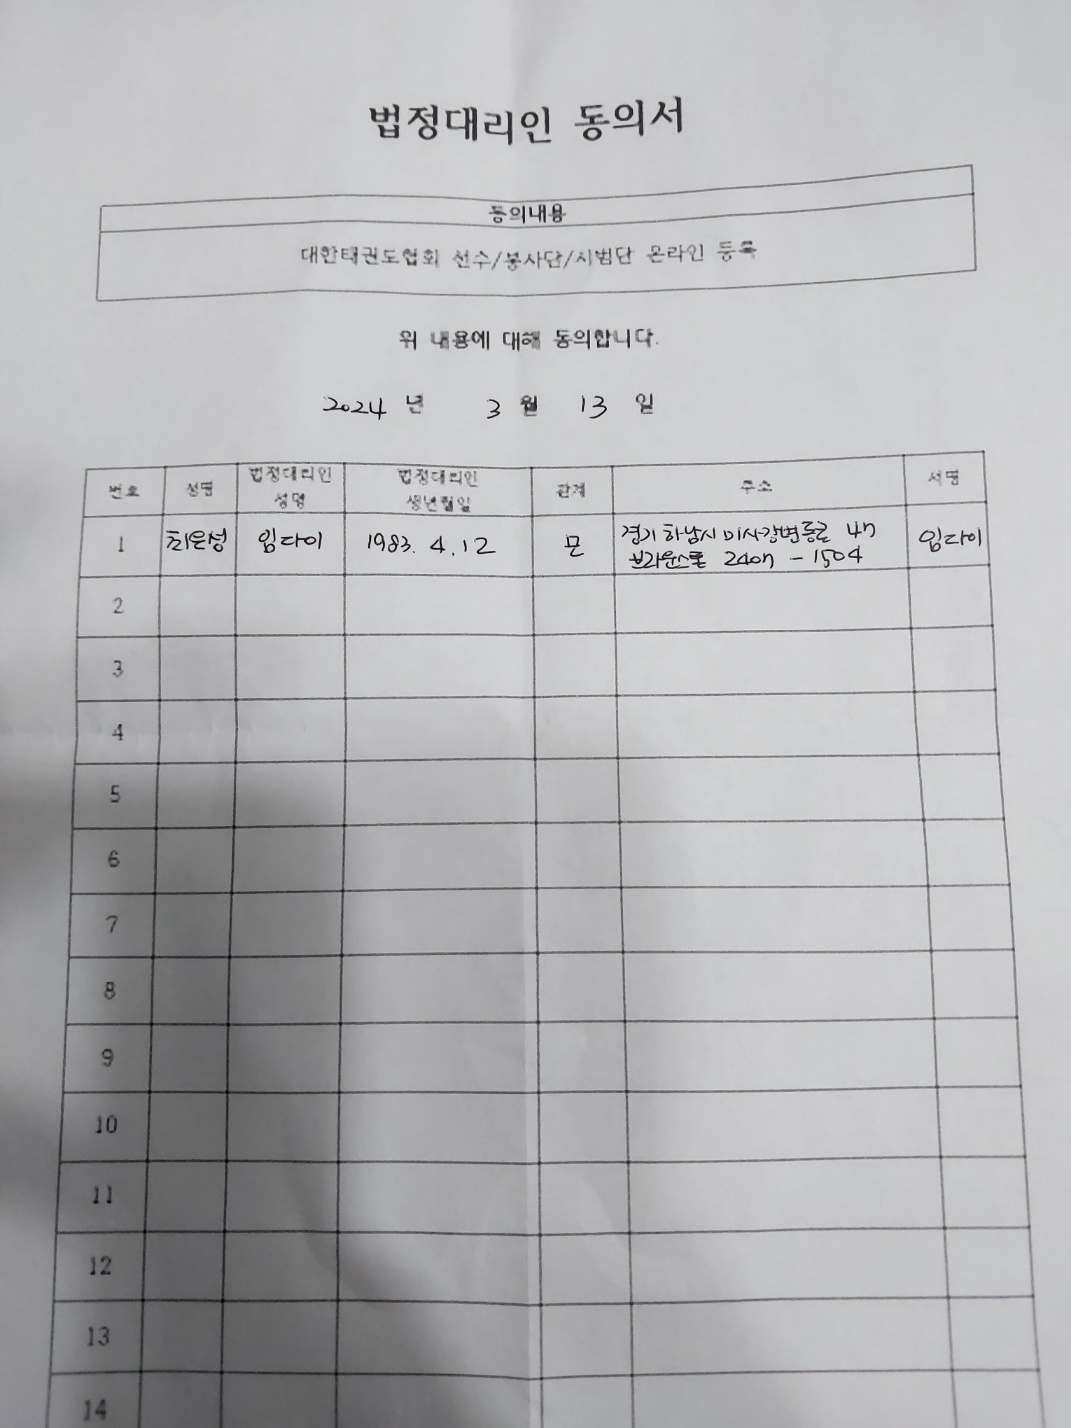 법정대리인 동의서
동의내용
대한태권도협회 선수/봉사단/시범단 온라인 등록
위 내용에 대해 동의합니다.
2024 년 3 월 13 일
번호 성명 법정대리인 성명 법정대리인 생년월일 관계 주소 서명
1 최은성 임다이 1983. 4. 12 모 경기 하남시 미사강변동로 임다이
2
3
4
5
6
7
8
9
10
11
12
13
14